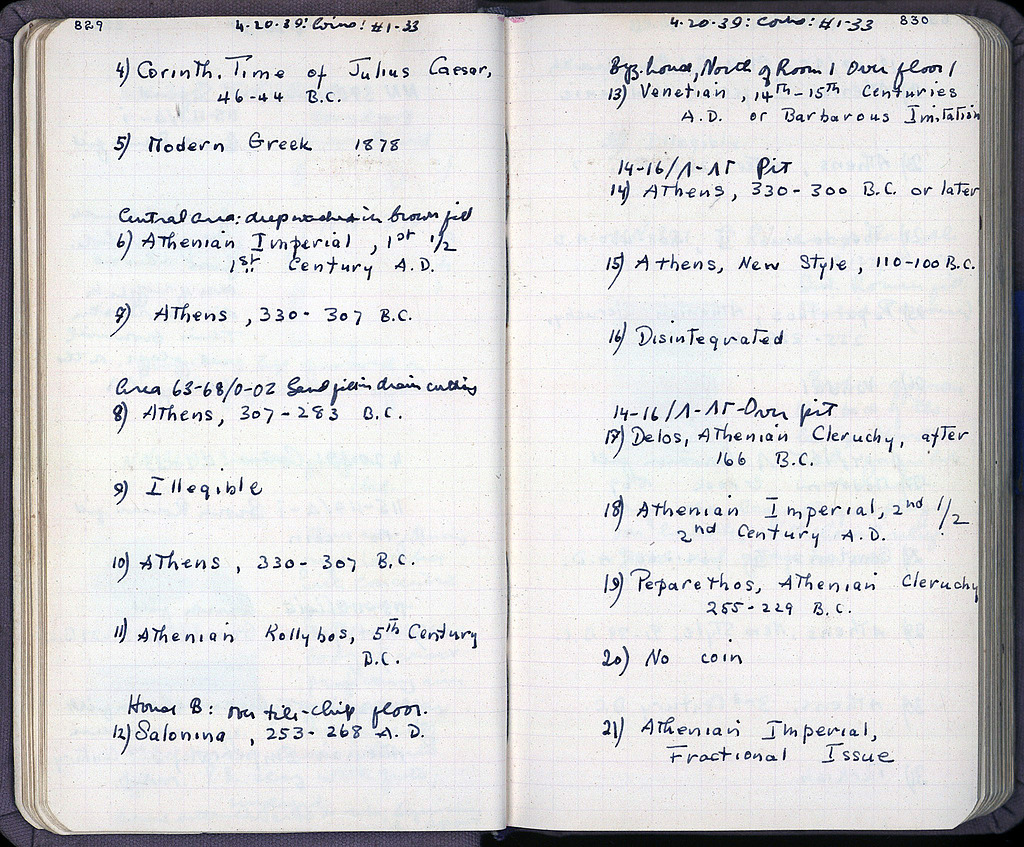 829
4-20-39: Coins: #1-33
4) Corinth. Time of Julius Caesar,
46-44 B.C.
5) Modern Greek 1878
Central area: deep in brown fill
6) Athenian Imperial, 1st 1/2
1st Century A.D.
7) Athens, 330-307 B.C.
Area 63-68/0-02 Sand fill in drain cutting
8) Athens, 307-283 B.C.
9) Illegible
10) Athens, 330-307 B.C.
11) Athenian Kollybos, 5th Century
B.C.
House B: over tile-chip floor.
12) Salonina, 253-268 A.D.
830
4-20-39: Coins: #1-33
Byz. house, North of Room 1 Over floor 1
13) Venetian, 14th-15th Centuries
A.D. or Barbarous Imitation
14-16/Λ-ΛΓ Pit
14) Athens, 330-300 B.C. or later
15) Athens, New Style, 110-100 B.C.
16) Disintegrated
14-16/Λ-ΛΓ-Over pit
17) Delos, Athenian Cleruchy, after
166 B.C.
18) Athenian Imperial, 2nd 1/2
2nd Century A.D.
19) Peparethos, Athenian Cleruchy
255-229 B.C.
20) No coin
21) Athenian Imperial,
Fractional Issue